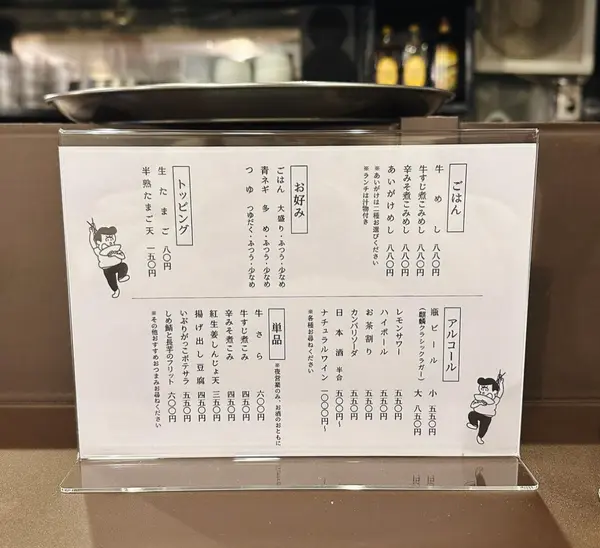 ごはん
牛めし 八八〇円
牛すじ煮こみめし 八八〇円
辛みそ煮こみめし 八八〇円
あいがけめし 八八〇円
※あいがけは二種お選びください
※ランチは汁物付き
お好み
ごはん 大盛り・ふつう・少なめ
青ネギ 多め・ふつう・少なめ
つゆ つゆだく・ふつう・少なめ
トッピング
生たまご 八〇円
半熟たまご天 一五〇円
アルコール
瓶ビール 小 五五〇円
(麒麟クラシックラガー) 大 八五〇円
レモンサワー 五五〇円
ハイボール 五五〇円
お茶割り 五五〇円
カンパリソーダ 五五〇円
日本酒 半合 五〇〇円〜
ナチュラルワイン 一〇〇〇円〜
※各種お尋ねください
単品
※夜営業のみ、お酒のおともに
牛さら 六〇〇円
牛すじ煮こみ 四五〇円
辛みそ煮こみ 四五〇円
紅生姜しんじょ天 三五〇円
揚げ出し豆腐 四五〇円
いぶりがっこポテサラ 五五〇円
しめ鯖と長芋のフリット 六〇〇円
※その他おすすめおつまみお尋ねください